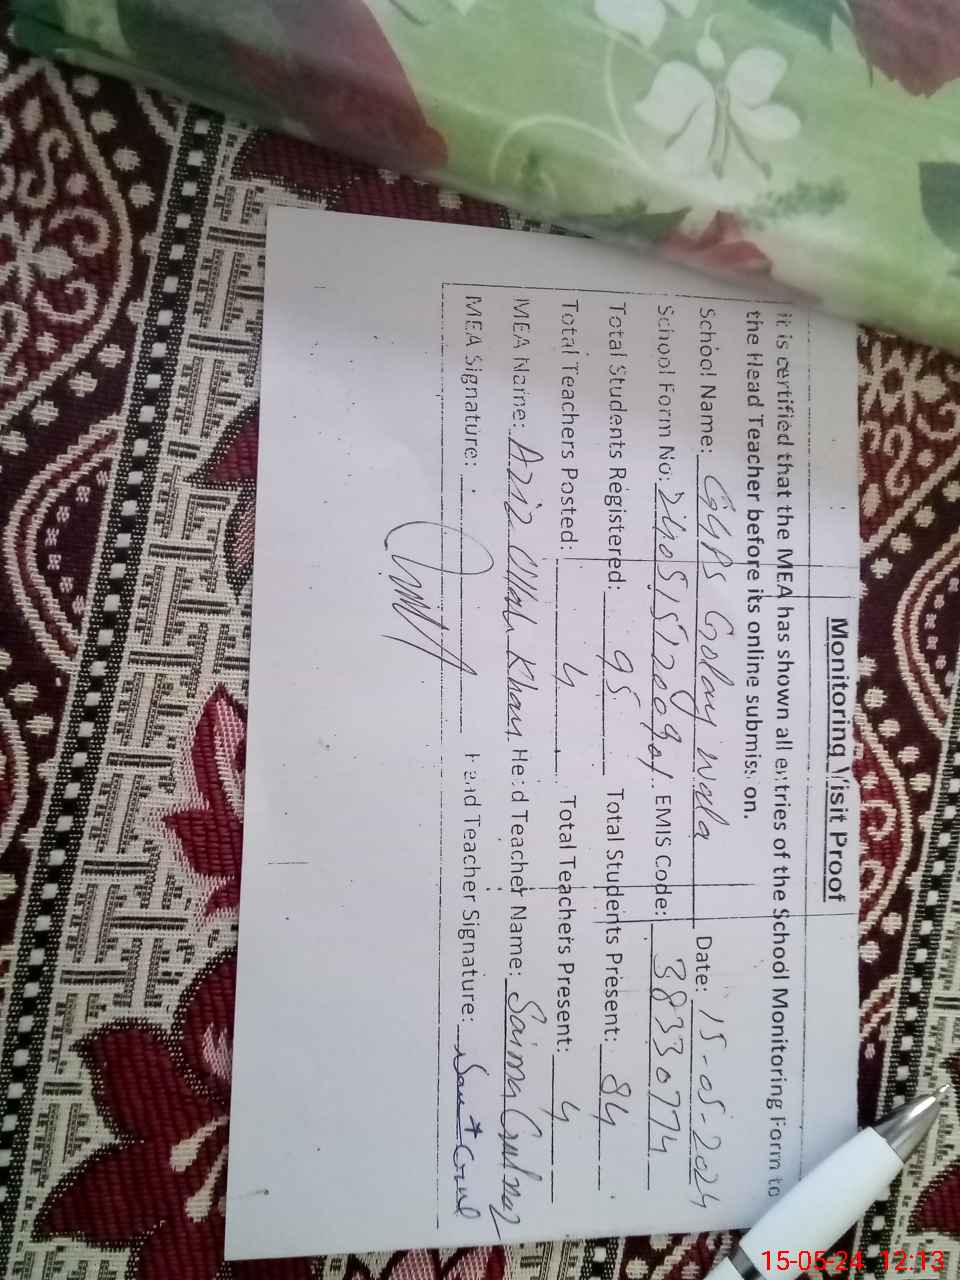 Monitoring Visit Proof
it is certified that the MEA has shown all entries of the School Monitoring Form to
the Head Teacher before its online submission.
School Name: GGPS Golay wala Date: 15-05-2024
School Form No: EMIS Code: 38330774
Total Students Registered: 95 Total Students Present: 84
Total Teachers Posted: 4 Total Teachers Present: 4
MEA Name: Aziz Ullah Khan Head Teacher Name: Saima Gulnaz
MEA Signature: Head Teacher Signature:
15-05-24 12:13